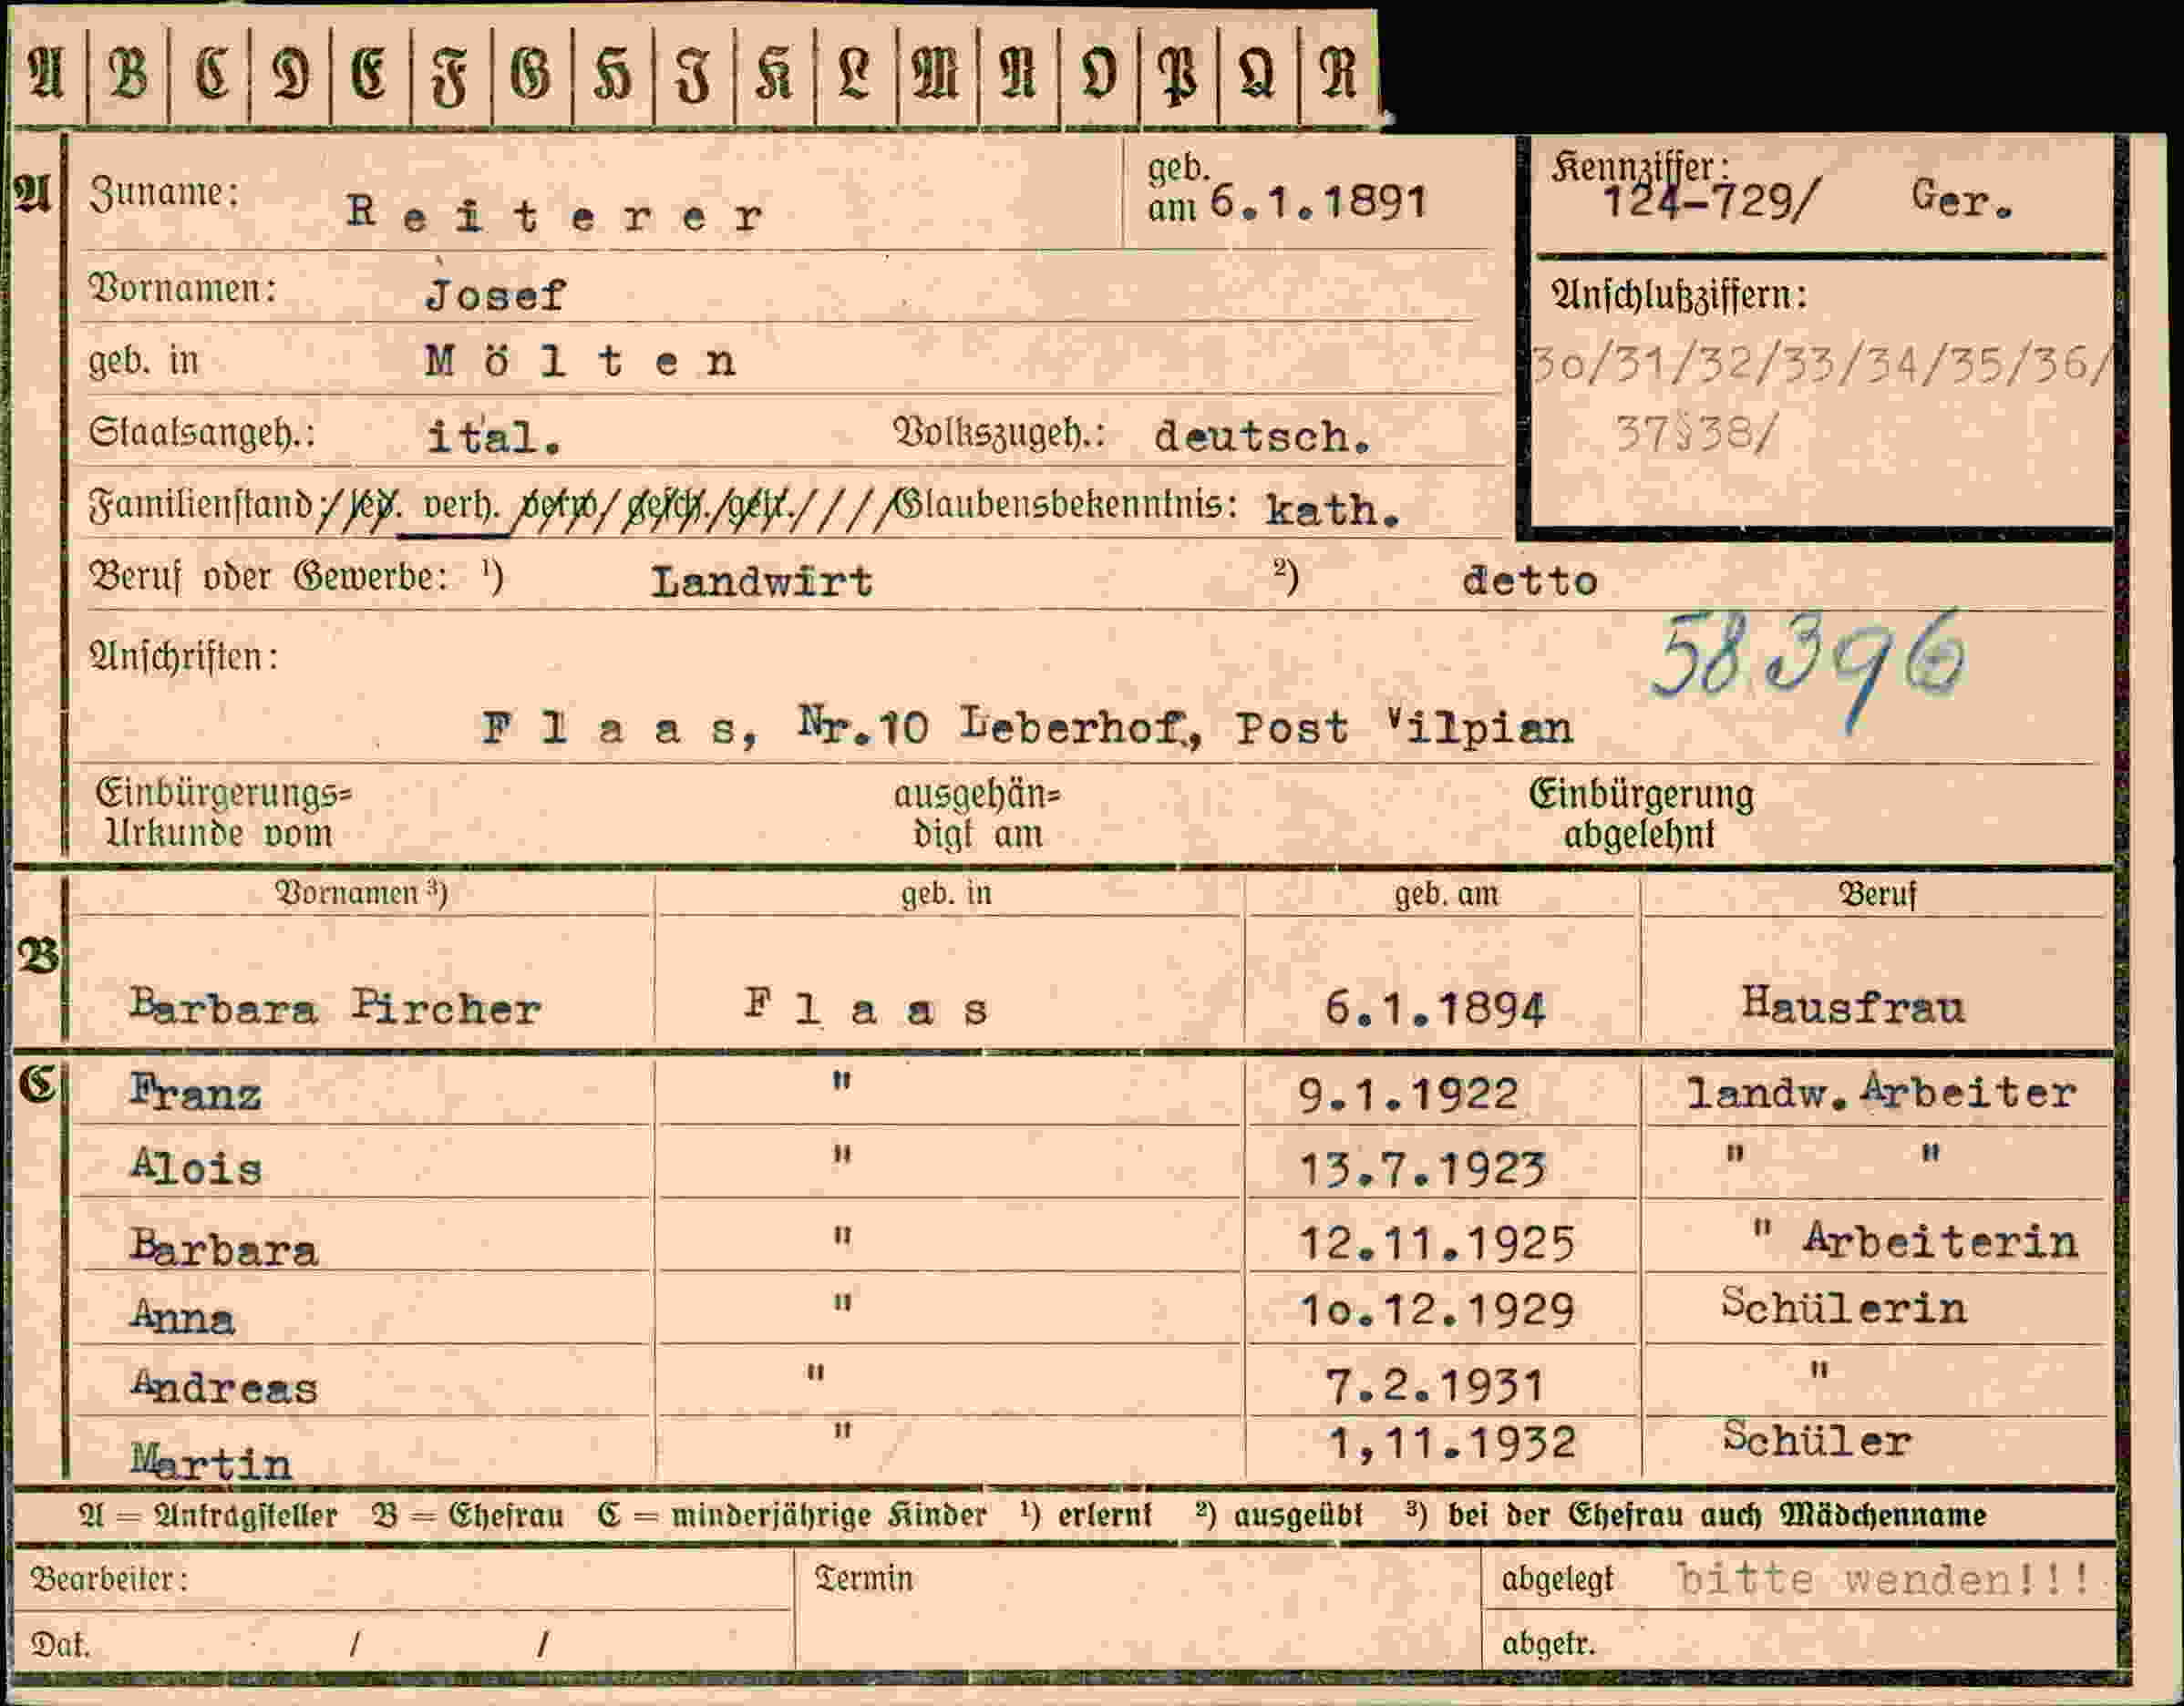 A B C D E F G H J K L M N O P Q R
A Zuname: Reiterer geb. am 6.1.1891 Kennziffer: 124-729/ Ger.
Vornamen: Josef Anschlußziffern:
geb. in Mölten 3o/31/32/33/34/35/36/
Staatsangeh.: ital. Volkszugeh.: deutsch. 37§38/
Familienstand: led. verh. verw. gesch. getr. Glaubensbekenntnis: kath.
Beruf oder Gewerbe: ¹) Landwirt ²) detto
Anschriften: 58396
Flaas, Nr.10 Leberhof, Post Vilpian
Einbürgerungs= ausgehän= Einbürgerung
Urkunde vom digt am abgelehnt
Vornamen ³) geb. in geb. am Beruf
B Barbara Pircher Flaas 6.1.1894 Hausfrau
C Franz " 9.1.1922 landw. Arbeiter
Alois " 13.7.1923 " "
Barbara " 12.11.1925 " Arbeiterin
Anna " 1o.12.1929 Schülerin
Andreas " 7.2.1931 "
Martin " 1,11.1932 Schüler
A = Antragsteller B = Ehefrau C = minderjährige Kinder ¹) erlernt ²) ausgeübt ³) bei der Ehefrau auch Mädchenname
Bearbeiter: Termin abgelegt bitte wenden!!!
Dat. / / abgetr.